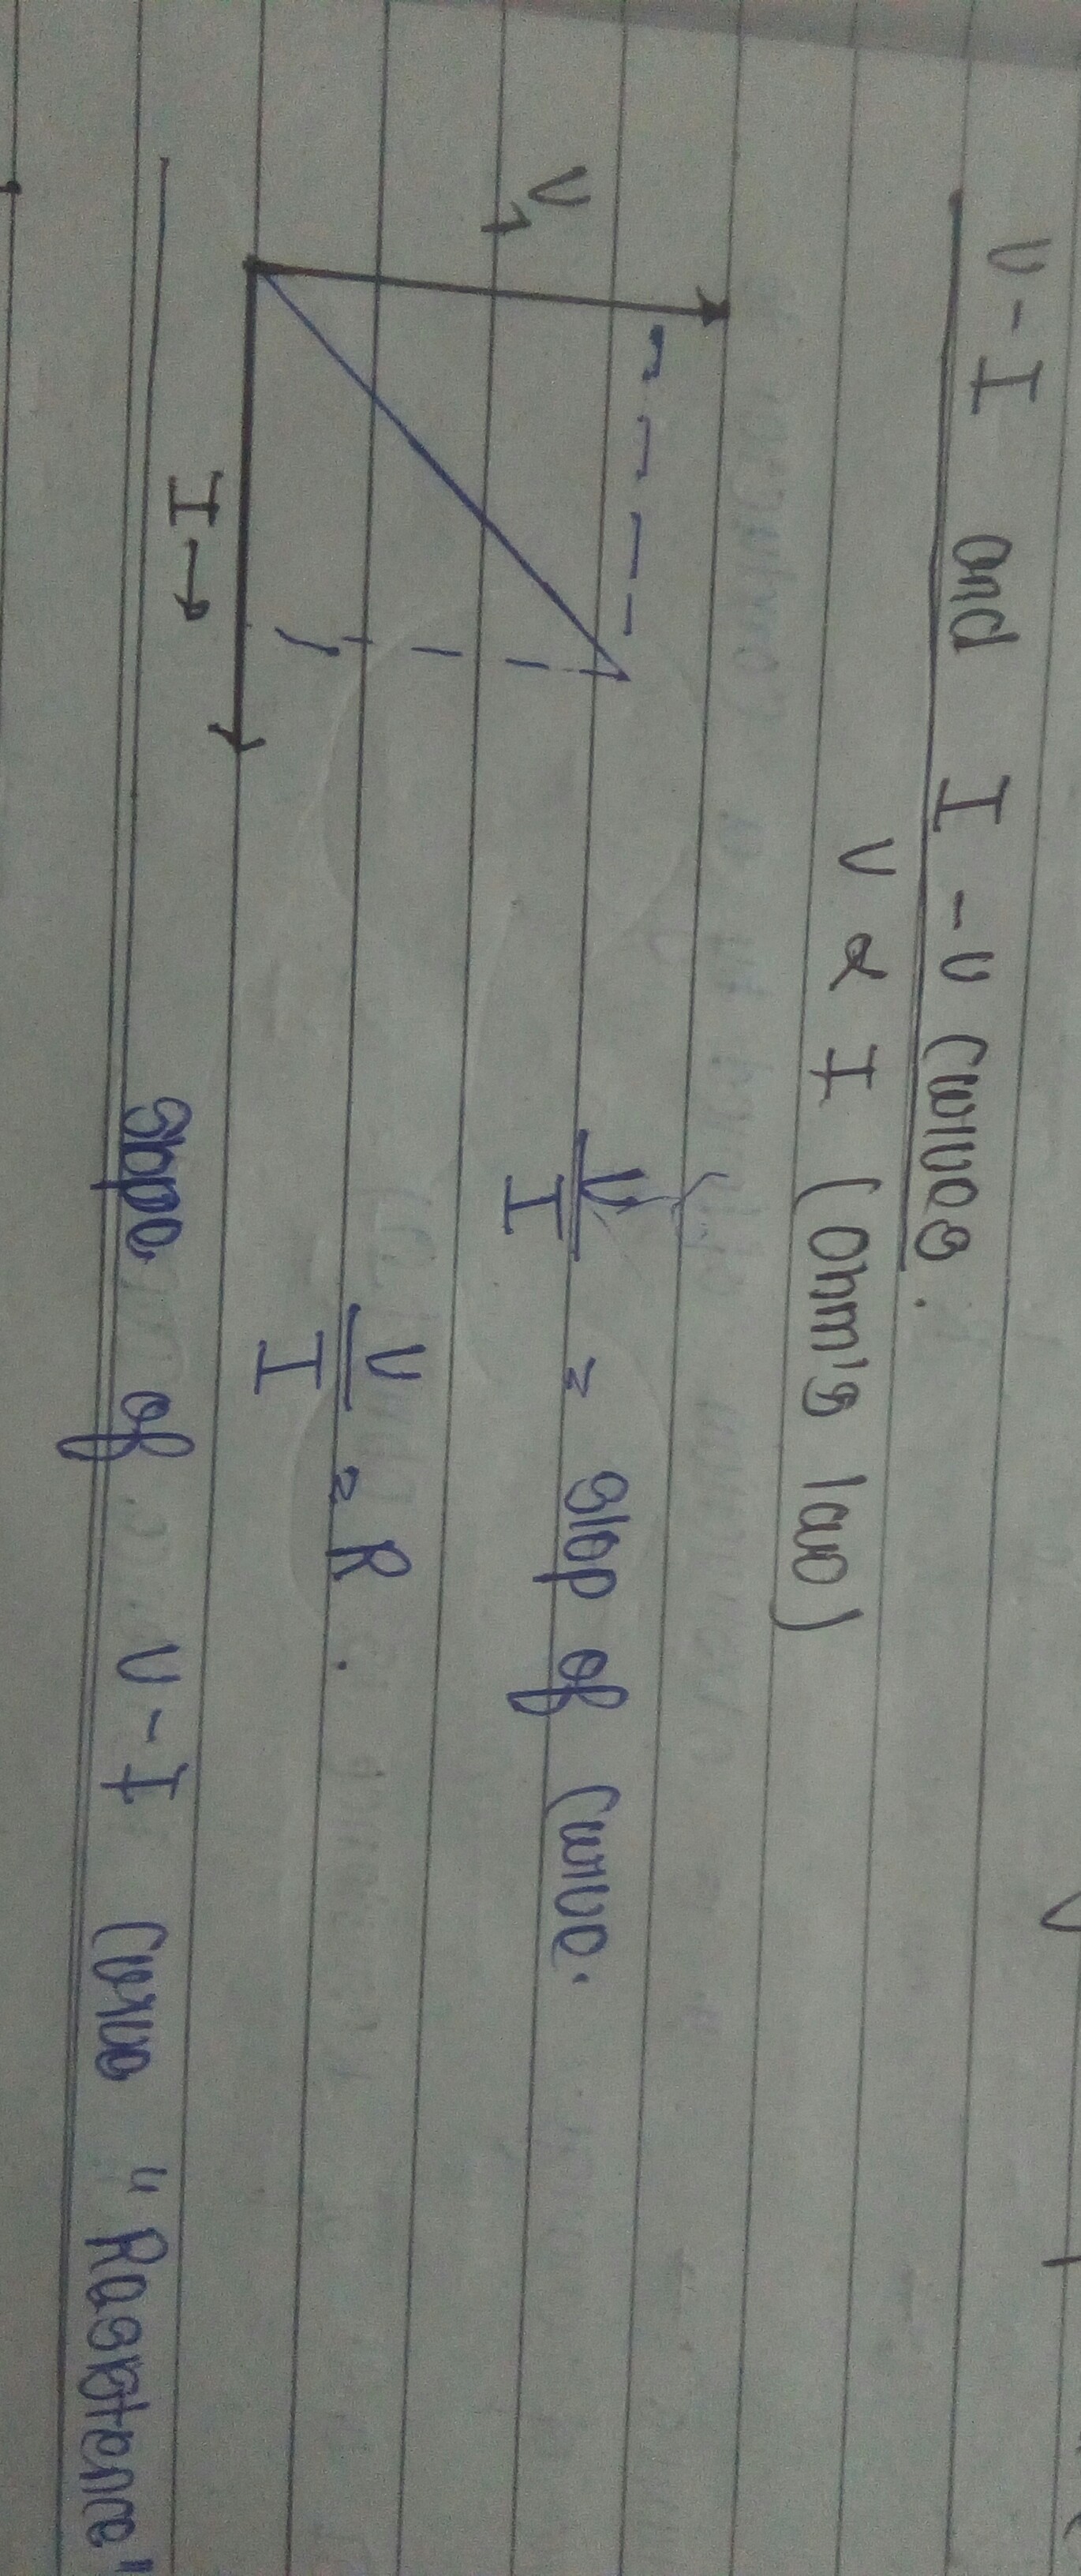 V - I and I - V Curves.
V ∝ I (Ohm's law)
V ↑
V/I = Slop of Curve.
V/I = R.
I →
Slope of V - I Curve "Rasistence"